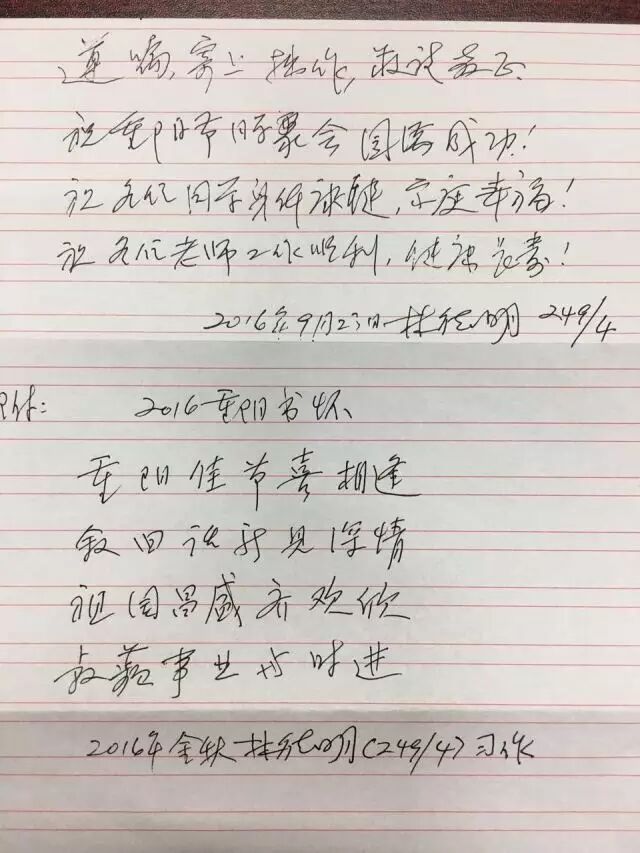 遵嘱,寄上拙作,敬请教正.
祝重阳节同学聚会圆满成功!
祝各位同学身体康健,家庭幸福!
祝各位老师工作顺利,健康长寿!
2016年9月23日 林德明 249/4
附件: 2016重阳书怀
重阳佳节喜相逢
叙旧话新见深情
祖国昌盛齐欢欣
事业与时进
2016年金秋 林德明(249/4)习作